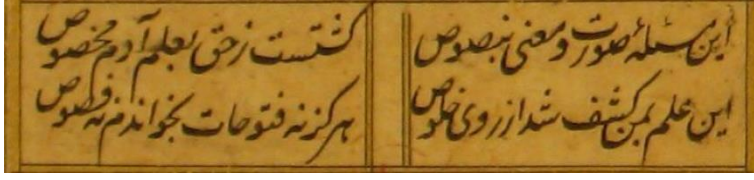 این مسئلهٔ صورت و معنی بنصوص
کشتست ز حق بعلم آدم مخصوص
این علم بمن کشف شد از روی خلوص
هرکز نه فتوحات بخواندم نه فصوص